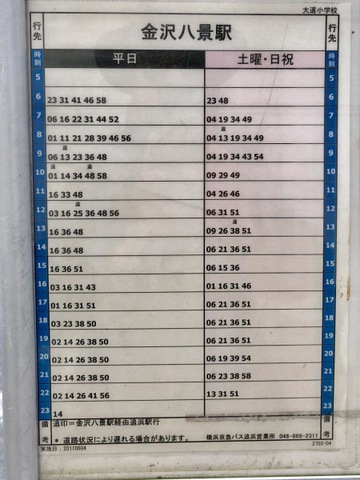 大道小学校
行先 金沢八景駅 行先
時刻 平日 土曜・日祝 時刻
5 5
6 23 31 41 46 58 23 48 6
7 06 16 22 31 44 52 04 19 34 49 7
追
8 01 11 21 28 39 46 56 04 13 19 34 49 8
追
9 06 13 23 36 48 04 19 34 43 54 9
追 追
10 01 14 34 48 58 09 29 49 10
11 16 33 48 04 26 46 11
追
12 03 16 25 36 48 56 06 31 51 12
追
13 16 36 48 09 26 38 51 13
14 16 36 48 06 21 36 51 14
15 16 36 51 06 15 36 15
16 03 16 31 43 01 16 31 46 16
17 01 16 31 51 06 21 36 51 17
18 03 23 38 50 06 21 36 51 18
19 02 14 26 38 50 06 21 36 51 19
20 02 14 26 38 50 06 19 39 54 20
21 02 14 26 38 50 06 23 38 58 21
22 02 14 26 41 56 13 31 51 22
23 14 23
備考 追印=金沢八景駅経由追浜駅行 備考
* 道路状況により遅れる場合があります。 横浜京急バス追浜営業所 046-866-2311
実施日:20110604 2703-04